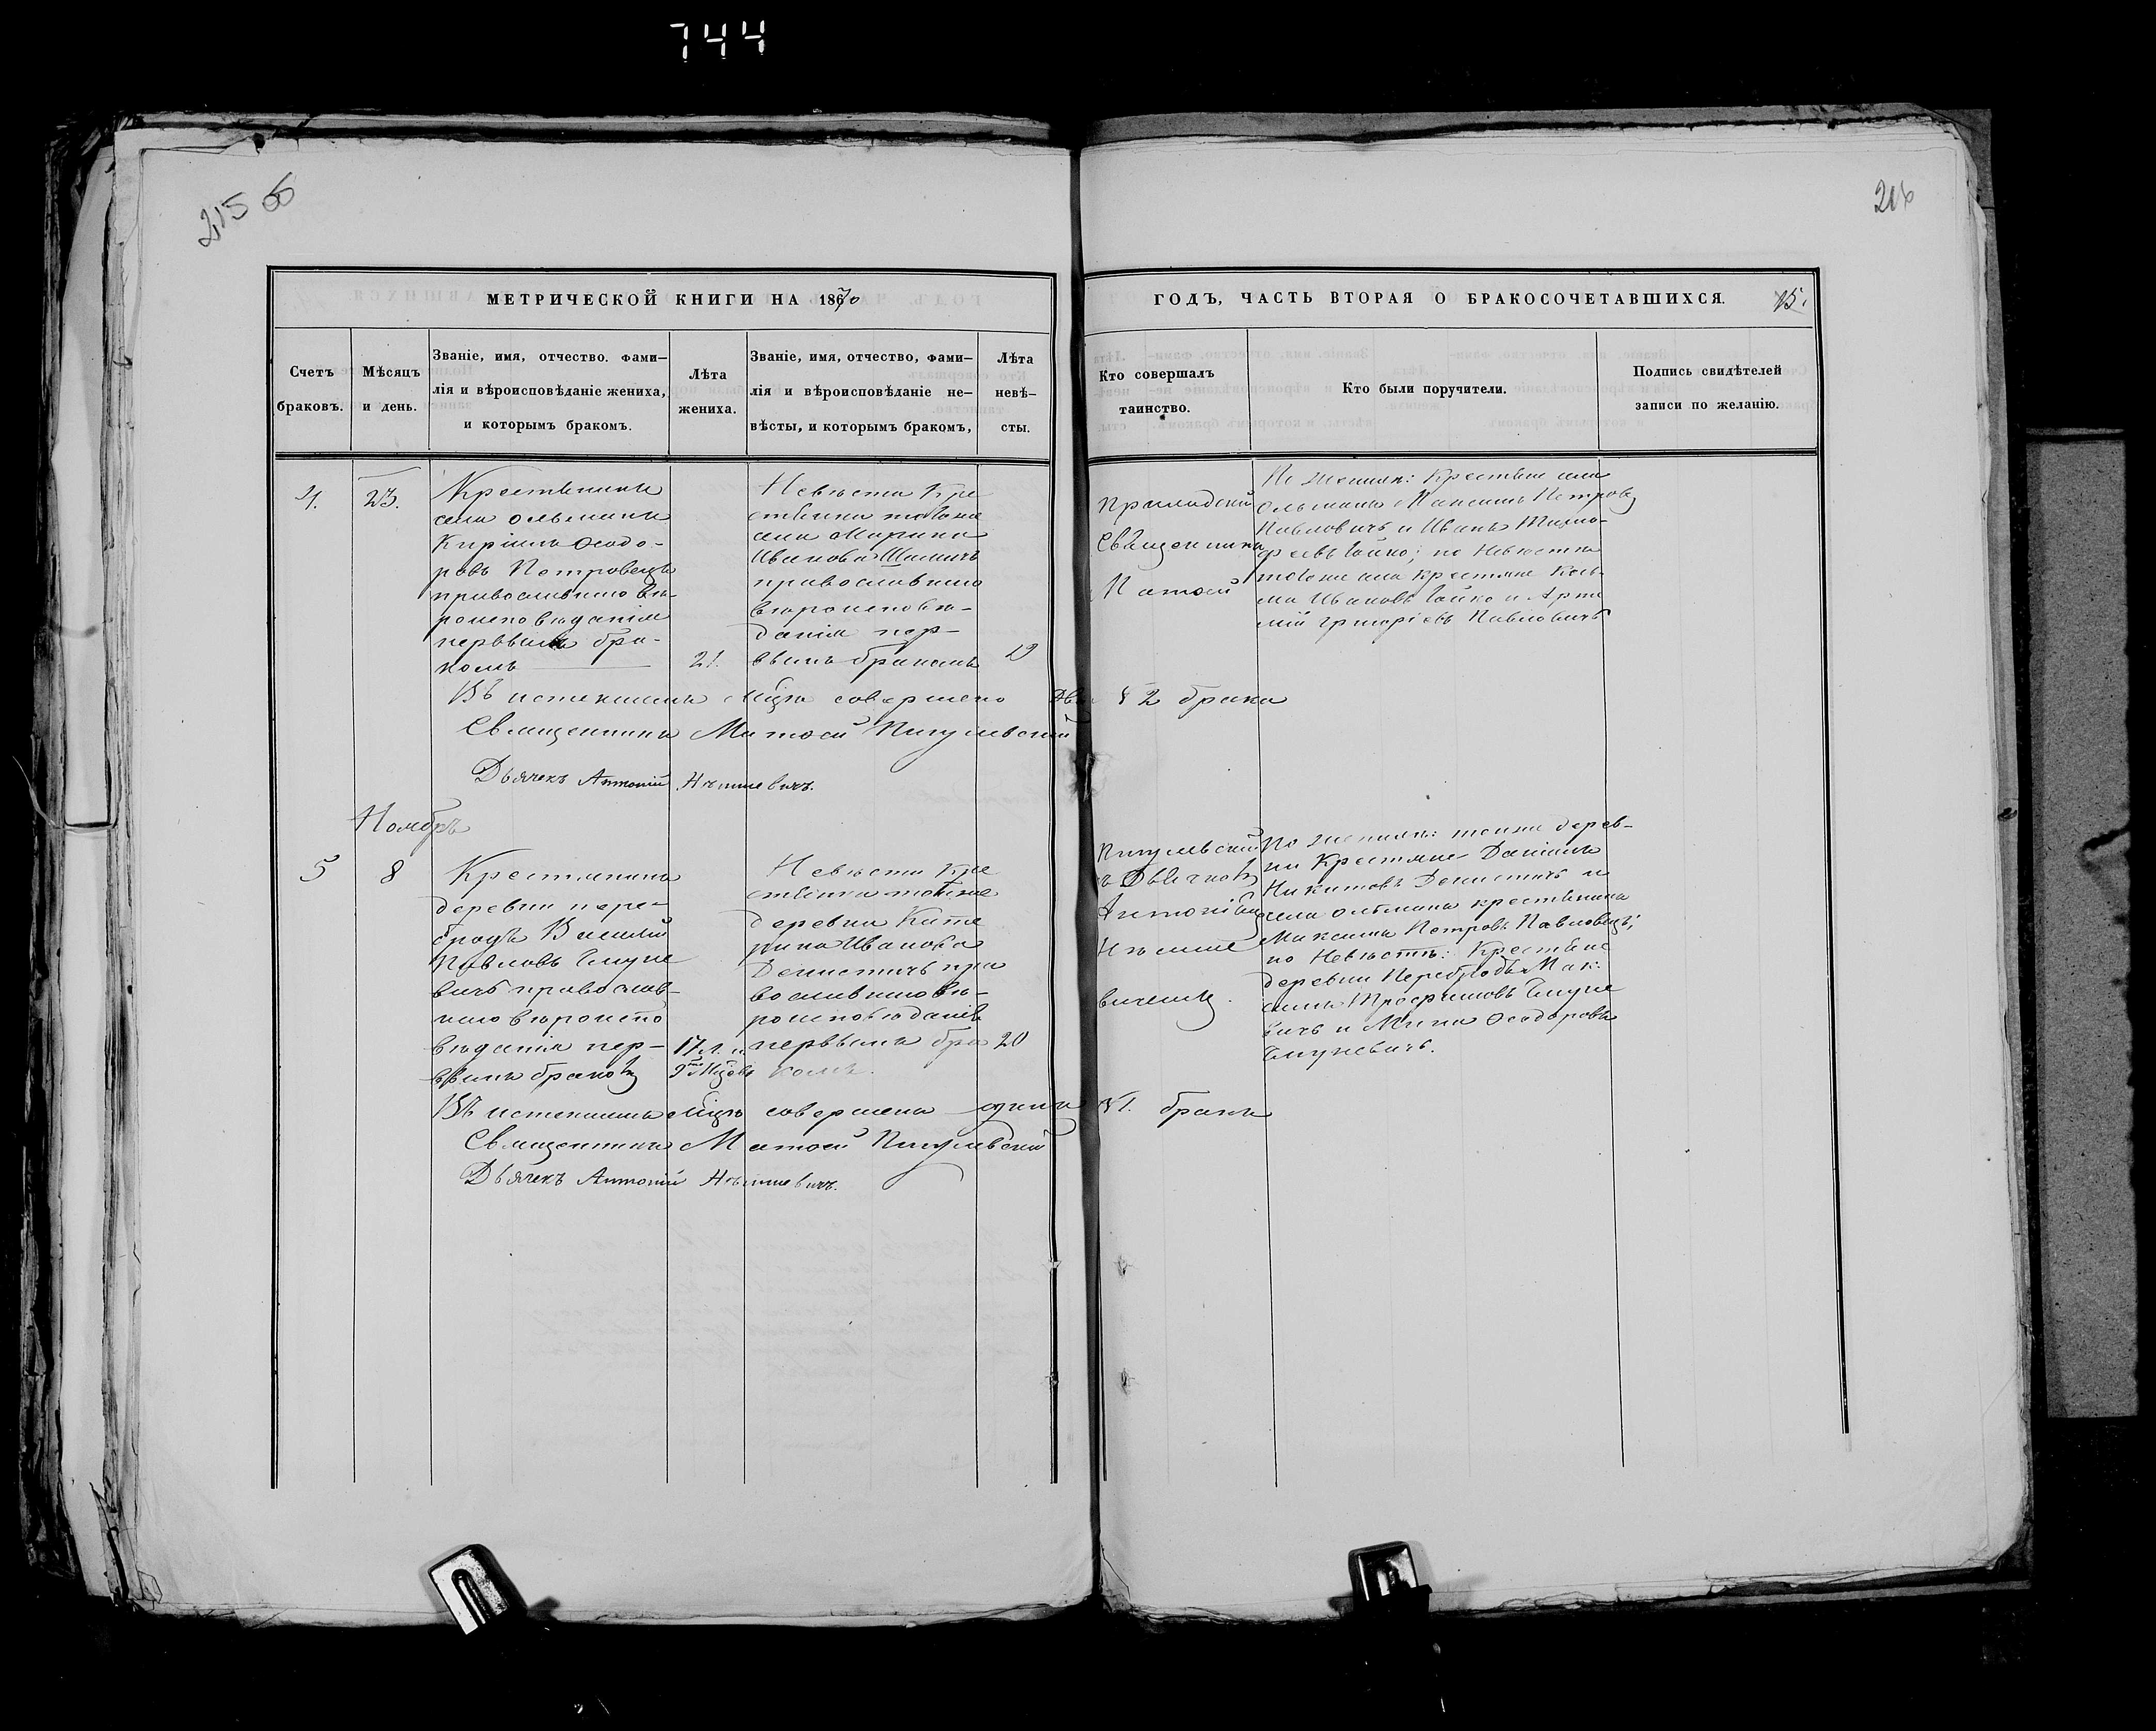 744
215 об
216
МЕТРИЧЕСКОЙ КНИГИ НА 1870
ГОДЪ, ЧАСТЬ ВТОРАЯ О БРАКОСОЧЕТАВШИХСЯ.
15.
Счетъ
браковъ.
Мѣсяцъ
и день.
Званіе, имя, отчество. фами-
лія и вѣроисповѣданіе жениха,
и которымъ бракомъ.
Лѣта
жениха.
Званіе, имя, отчество, фами-
лія и вѣроисповѣданіе не-
вѣсты, и которымъ бракомъ,
Лѣта
невѣ-
сты.
Кто совершалъ
таинство.
Кто были поручители.
Подпись свидѣтелей
записи по желанію.
4.
23.
Крестьянинъ
села Ольманъ
Кирилъ Ѳеодо-
ровъ Петровецъ
православнаго вѣ-
роисповѣданія
первымъ бра-
комъ
21.
Невѣста Кре
стьянка тогоже
села Марина
Иванова
православнаго
вѣроисповѣ-
данія пер-
вымъ бракомъ
19
Приходскій
Священникъ
Матѳей
По женихѣ: Крестьяне села
Ольманъ Максимъ Петровъ
Павловичъ и Иванъ Тимо-
феевъ Чайко; по Невѣстѣ
тогоже села крестьяне Козь-
ма Ивановъ Чайко и Арте
мій Григоріевъ Павловичъ
Въ истекшемъ М҃цѣ совершено два 2 брака
Священникъ Матѳей Пигулевскій
Дьячекъ Антоній
Ноябрь
5
8
Крестьянинъ
деревни пере-
бродъ Василій
Павловъ
вичъ православ-
наго вѣроиспо
вѣданія пер-
вымъ бракомъ
17 л. и
9 мѣс҃цевъ
Невѣста Кре
стьянка тойже
деревни Кате
рина Иванова
Денисичъ пра
вославнаго вѣ-
роисповѣданія
первымъ бра
комъ.
20
Пигулевскій
съ Дьячкомъ
Антоніемъ
По женихѣ: тойже дерев-
ни Крестьяне Даніилъ
Никитовъ и
села Ольмана крестьянинъ
Максимъ Петровъ Павловецъ;
по Невѣстѣ: Крестьяне
деревни Перебродъ Мак-
симъ Трофимовъ
вичъ и Мина Ѳеодоровъ
Въ истекшемъ М҃цѣ совершенъ одинъ 1. бракъ
Священникъ Матѳей Пигулевскій
Дьячекъ Антоній